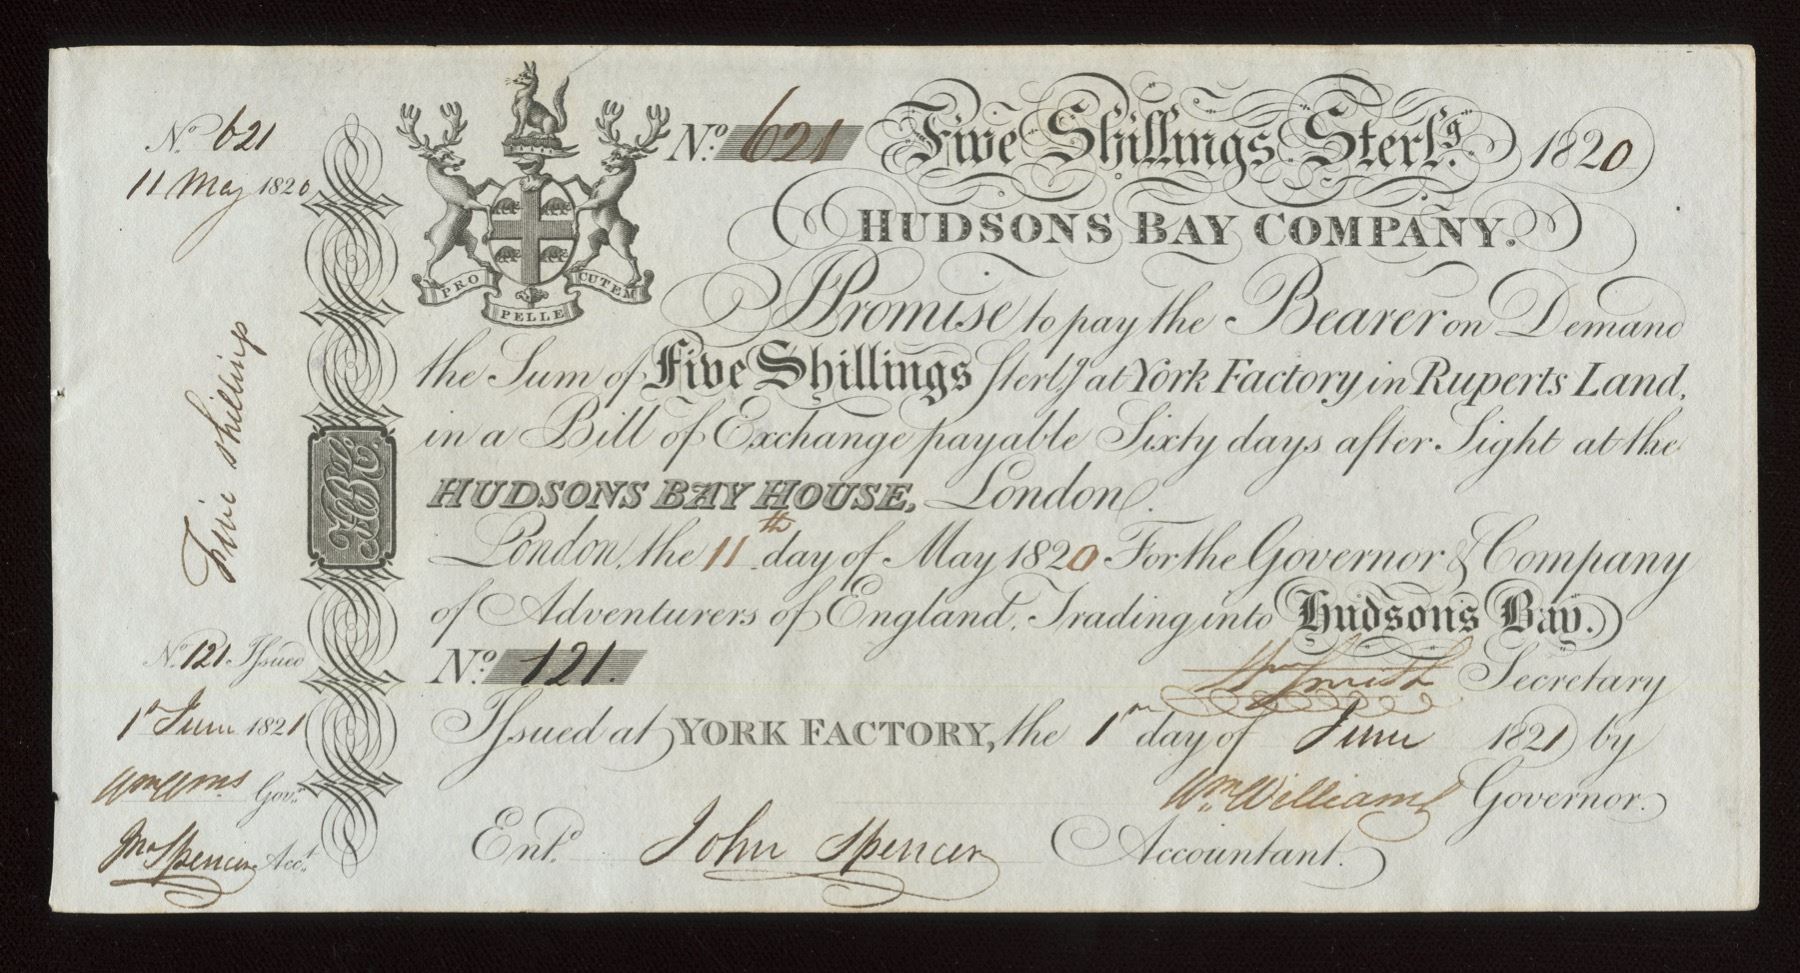 No. 621
11 May 1820
Five shillings
No. 121 Issued
1st June 1821
Wm Wms Govr.
Jno Spencer Acct.
HBC
PRO
PELLE
CUTEM
No. 621 Five Shillings Sterlg. 1820
HUDSONS BAY COMPANY.
I Promise to pay the Bearer on Demand
the Sum of Five Shillings Sterlg. at York Factory in Ruperts Land,
in a Bill of Exchange payable Sixty days after Sight at the
HUDSONS BAY HOUSE, London.
London, the 11th day of May 1820 For the Governor & Company
of Adventurers of England, Trading into Hudson's Bay.
No. 121. Wm Smith Secretary
Issued at YORK FACTORY, the 1st day of June 1821 by
Wm. Williams Governor.
Entd. John Spencer Accountant.